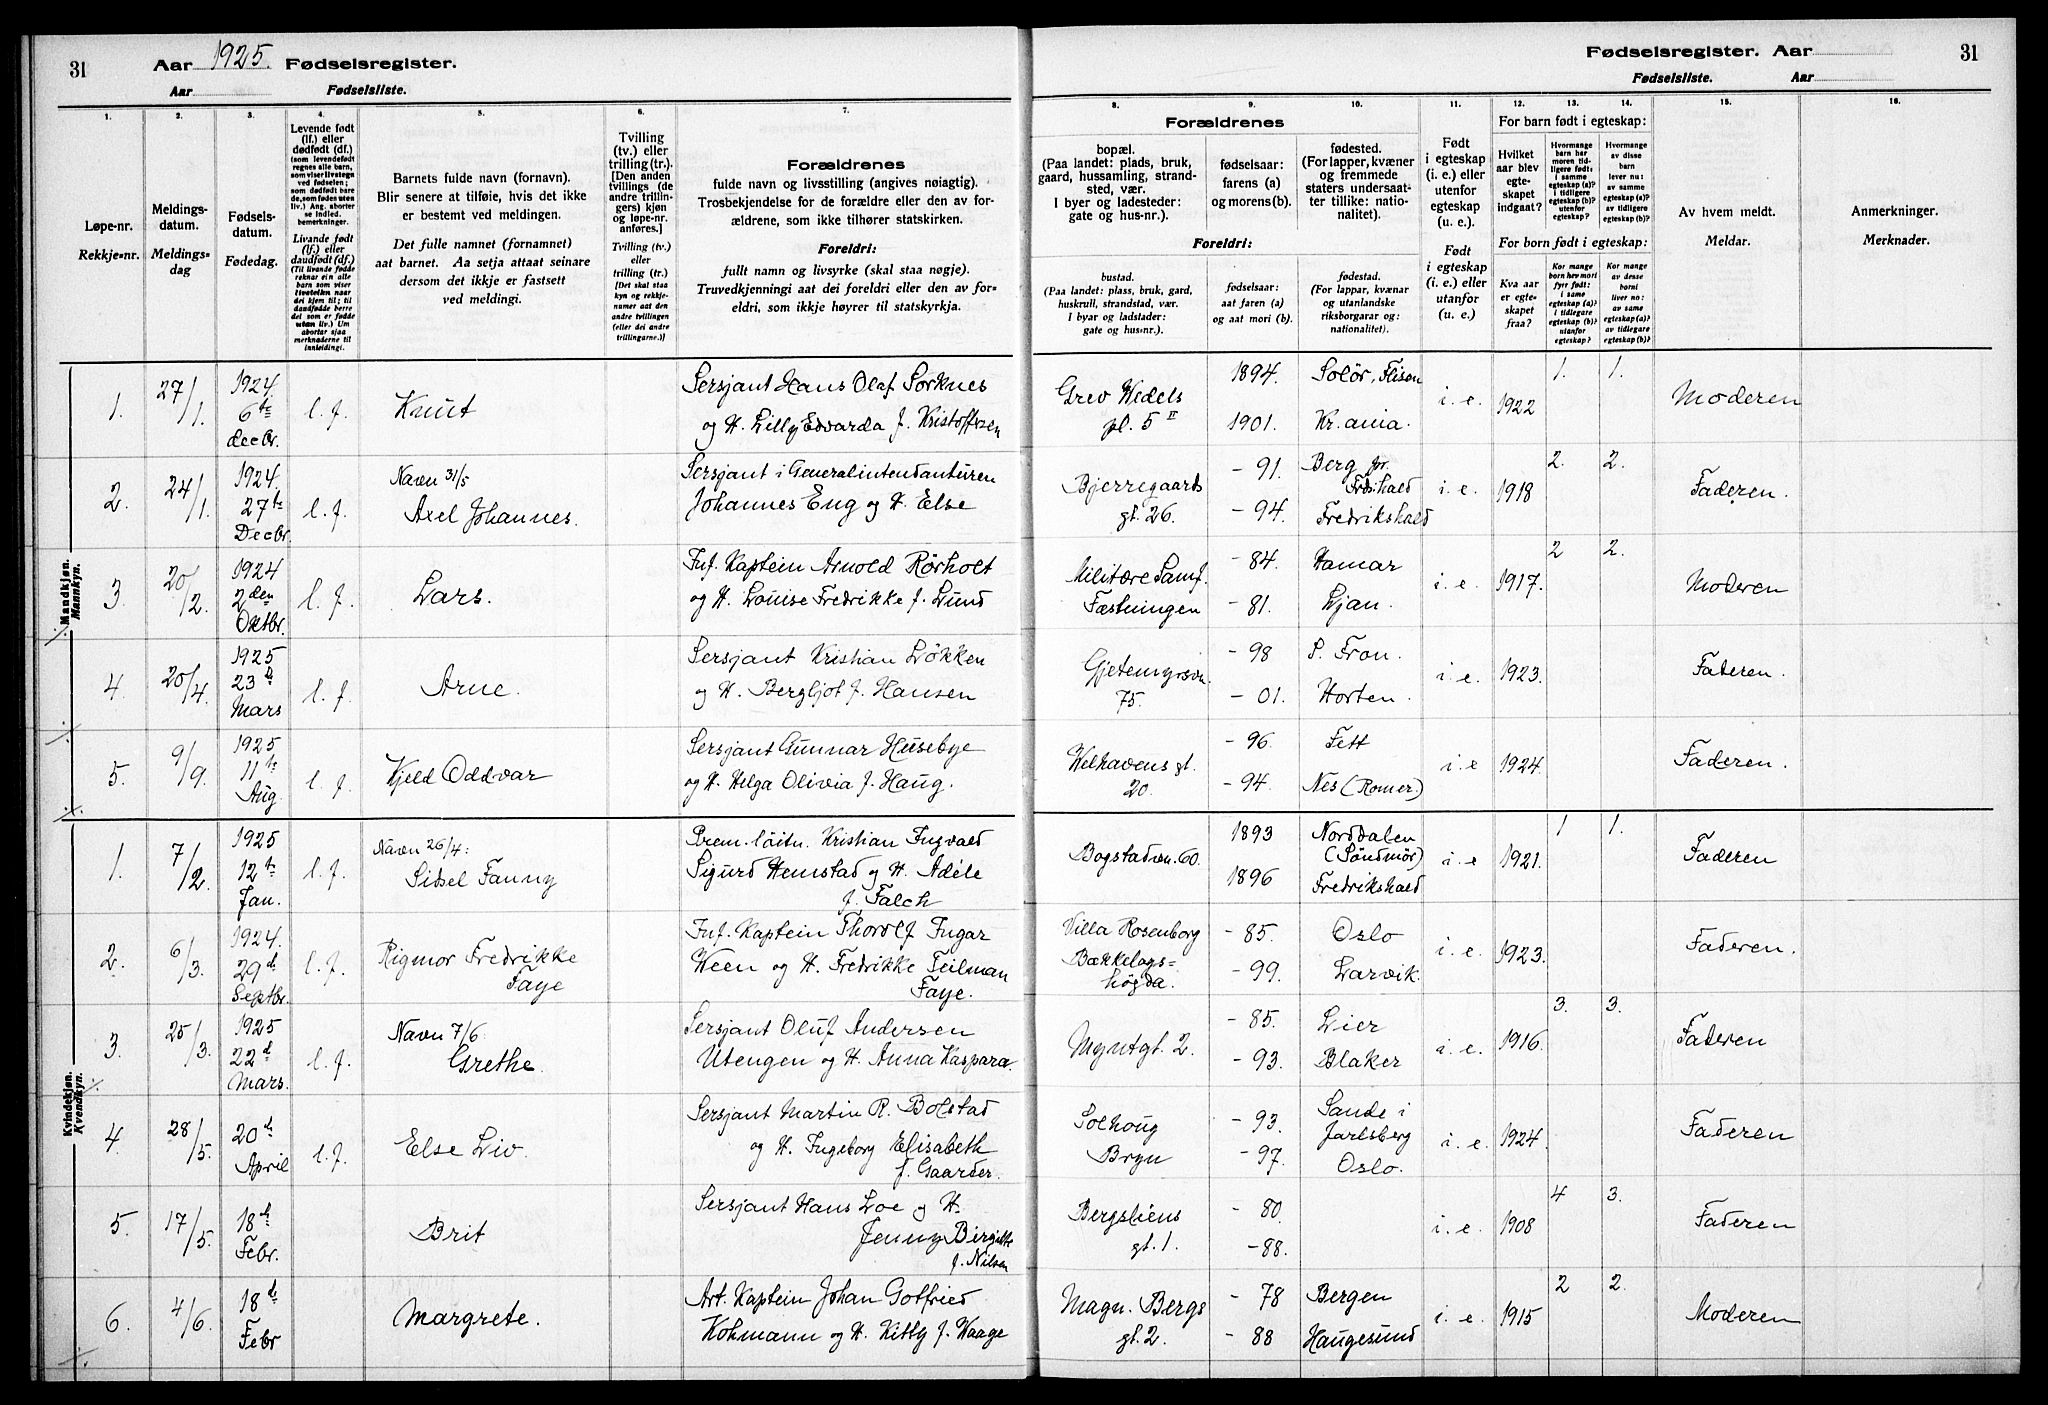 31 Aar 1925. Fødselsregister.
Aar Fødselsliste.
Fødselsregister. Aar 31
Fødselsliste. Aar
1. 2. 3. 4. 5. 6. 7. 8. 9. 10. 11. 12. 13. 14. 15. 16.
Løpe-nr.
Rekkje-nr.
Meldings-
datum.
Meldings-
dag
Fødsels-
datum.
Fødedag.
Levende født
(lf.) eller
dødfødt (df.)
(som levendefødt
regnes alle barn,
som viser livstegn
ved fødselen;
som dødfødt bare
de, som fødes uten
liv.) Ang. aborter
se indled.
bemerkninger.
Livande født
(lf.) eller
daudfødt (df.)
(Til livande fødde
reknar ein alle
barn som viser
livsteikn naar
dei kjem til; til
daudfødde berre
dei som er fødde
utan liv.) Um
abortar sjaa
merknaderne til
innleidingi.
Barnets fulde navn (fornavn).
Blir senere at tilføie, hvis det ikke
er bestemt ved meldingen.
Det fulle namnet (fornamnet)
aat barnet. Aa setja attaat seinare
dersom det ikkje er fastsett
ved meldingi.
Tvilling
(tv.) eller
trilling (tr.).
[Den anden
tvillings (de
andre trillin-
gers) kjøn
og løpe-nr.
anføres.]
Tvilling (tv.)
eller
trilling (tr.)
[Det skal staa
kyn og rekkje-
numer aat den
andre tvillingen
(eller dei andre
trillingarne.)]
Forældrenes
fulde navn og livsstilling (angives nøiagtig).
Trosbekjendelse for de forældre eller den av for-
ældrene, som ikke tilhører statskirken.
Foreldri:
fullt namn og livsyrke (skal staa nøgje).
Truvedkjenningi aat dei foreldri eller den av for-
eldri, som ikkje høyrer til statskyrkja.
Forældrenes
bopæl.
(Paa landet: plads, bruk,
gaard, hussamling, strand-
sted, vær.
I byer og ladesteder:
gate og hus-nr.).
fødselsaar:
farens (a)
og morens(b).
fødested.
(For lapper, kvæner
og fremmede
staters undersaat-
ter tillike: natio-
nalitet).
Foreldri:
bustad.
(Paa landet: plass, bruk, gard,
huskrull, strandstad, vær.
I byar og ladstader:
gate og hus-nr.).
fødselsaar:
aat faren (a)
og aat mori (b).
fødestad.
(For lappar, kvænar
og utanlandske
riksborgarar og:
nationalitet).
Født
i egteskap
(i. e.) eller
utenfor
egteskap
(u. e.).
Født
i egteskap
(i. e.) eller
utanfor
(u. e.)
For barn født i egteskap:
Hvilket
aar blev
egte-
skapet
indgaat?
Hvormange
barn har
moren tid-
ligere født:
i samme
egteskap (a)?
i tidligere
egteskap (b)?
utenfor
egteskap?
Hvormange
av disse
barn
lever nu:
av samme
egteskap (a)?
av tidligere
egteskap (b)?
For born født i egteskap:
Kva aar
er egte-
skapet
fraa?
Kor mange
born hev mori
fyrr født:
i same
egteskap (a)?
i tidlegare
egteskap (b)?
utanfor
egteskap?
Kor mange
av desse
borni
liver no:
av same
egteskap (a)?
av tidlegare
egteskap (b)?
Av hvem meldt.
Meldar.
Anmerkninger.
Merknader.
Mandkjøn.
Mannkyn.
1. 27/1. 1924. 6te decbr. l. f. Knut
Sersjant Hans Olaf Sorknes
og H. Lilly Edvarda f. Kristoffersen
Grev Wedels pl. 5 II 1894. 1901. Solör, Flisen Kr.ania. i. e. 1922 1. 1. Moderen
2. 24/1. 1924. 27te Decbr. l. f. Navn 31/5 Axel Johannes.
Sersjant i Generalintendanturen
Johannes Eng og H. Else
Bjerregaards gt. 26. - 91. - 94. Berg pr. Fredrikshald i. e. 1918 2. 2. Faderen.
3. 20/2. 1924 2den Oktbr. l. f. Lars.
Inf. Kaptein Arnold Rørholt
og H. Louise Fredrikke f. Lund
Militære Samf. Fæstningen - 84. - 81. Hamar Ljan. i. e. 1917. 2 2. Moderen
4. 20/4. 1925 23d Mars l. f. Arne.
Sersjant Kristian Løkken
og H. Bergljot f. Hansen
Gjetemyrsvn. 75. - 98 - 01. S. Fron. Horten. i. e. 1923. Faderen.
5. 9/9. 1925 11te Aug. l. f. Kjeld Oddvar
Sersjant Gunnar Husebye
og H. Helga Olivia f. Haug.
Welhavens gt. 20. - 96. - 94. Fett Nes (Romer.) i. e 1924. Faderen.
Kvindekjøn.
Kvendkyn.
1. 7/2. 1925 12te Jan. l. f. Navn 26/4: Sidsel Fanny
Prem. löitn. Kristian Ingvald
Sigurd Hemstad og H. Adéle
f. Falch
Bogstadvn. 60. 1893 1896 Norddalen (Söndmör) Fredrikshald i. e 1921. 1 1. Faderen
2. 6/3. 1924. 29d Septbr. l. f. Rigmor Fredrikke Faye
Inf. Kaptein Thorolf Ingar
Ween og H. Fredrikke Teilman
Faye.
Villa Rosenborg Bækkelags= högda. - 85. - 99. Oslo Larvik. i. e. 1923. Faderen.
3. 25/3. 1925 22d Mars. l. f. Navn 7/6 Grethe.
Sersjant Oluf Andersen
Utengen og H. Anna Kaspara.
Myntgt. 2. - 85. - 93. Lier Blaker i. e. 1916. 3. 3. Faderen
4. 28/5. 20d April l. f. Else Liv.
Sersjant Martin R. Bolstad
og H. Ingeborg Elisabeth
f. Gaarder.
Solhoug Bryn - 93. - 97. Sande i Jarlsberg Oslo. i. e. 1924. Faderen
5. 17/5. 18d Febr. Brit
Sersjant Hans Loe og H.
Jenny Birgitte
f. Nilsen
Bergsliens gt. 1. - 80. - 88. i. e. 1908 4 3. Faderen
6. 4/6. 18de Febr Margrete.
Art. Kaptein Johan Gotfried
Kohmann og H. Kitty f. Waage
Magn. Bergs gt. 2. - 78 - 88 Bergen Haugesund i. e. 1915 2 2. Moderen